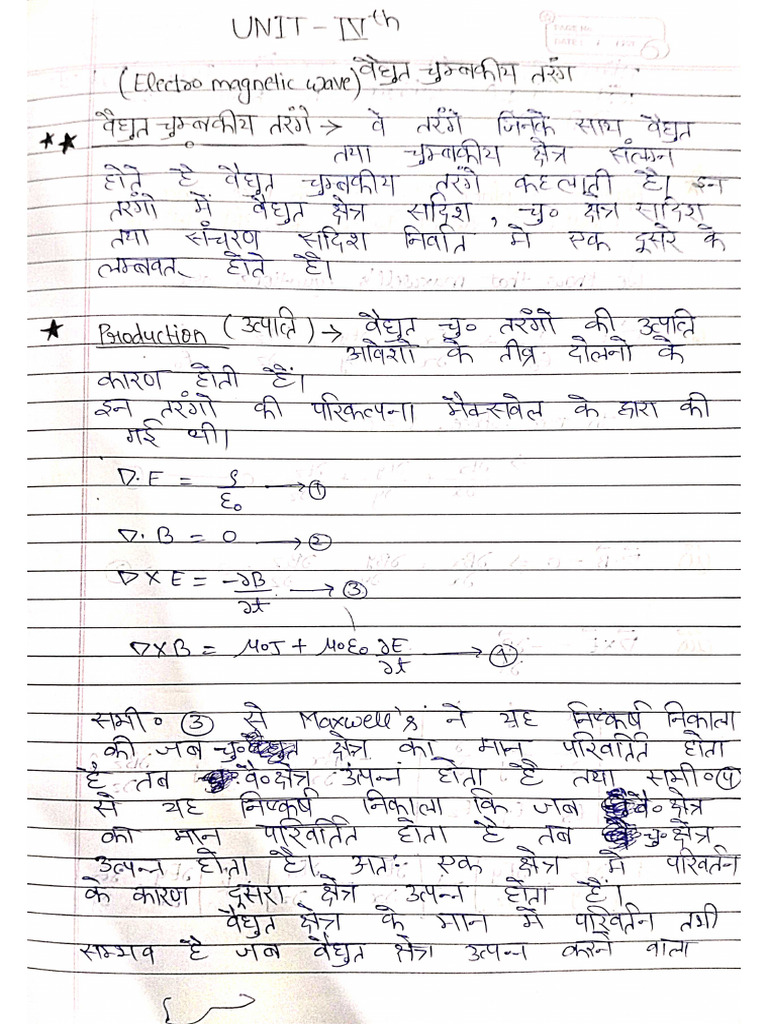 UNIT - IVth
PAGE No.
DATE: / /
(Electro magnetic wave) वैद्युत चुम्बकीय तरंग
वैद्युत चुम्बकीय तरंगे → वे तरंगे जिनके साथ वैद्युत
तथा चुम्बकीय क्षेत्र संलग्न
होते है वैद्युत चुम्बकीय तरंगे कहलाती है। इन
तरंगो में वैद्युत क्षेत्र सदिश, चु० क्षेत्र सदिश
तथा संचरण सदिश निर्वात में एक दूसरे के
लम्बवत होते है।
Production (उत्पत्ति) → वैद्युत चु० तरंगो की उत्पत्ति
आवेशो के तीव्र दोलनो के
कारण होती हैं।
इन तरंगो की परिकल्पना मैक्सवेल के द्वारा की
गई थी।
∇.E = ρ/ε₀ → ①
∇.B = 0 → ②
∇×E = -∂B/∂t → ③
∇×B = μ₀J + μ₀ε₀ ∂E/∂t → ④
समी० ③ से Maxwell's ने यह निष्कर्ष निकाला
की जब चु० क्षेत्र का मान परिवर्तित होता
है तब वै०क्षेत्र उत्पन्न होता है तथा समी०④
से यह निष्कर्ष निकाला कि जब वै० क्षेत्र
का मान परिवर्तित होता है तब चु० क्षेत्र
उत्पन्न होता है। अतः एक क्षेत्र में परिवर्तन
के कारण दूसरा क्षेत्र उत्पन्न होता हैं।
वैद्युत क्षेत्र के मान में परिवर्तन तभी
सम्भव है जब वैद्युत क्षेत्र उत्पन्न करने वाला